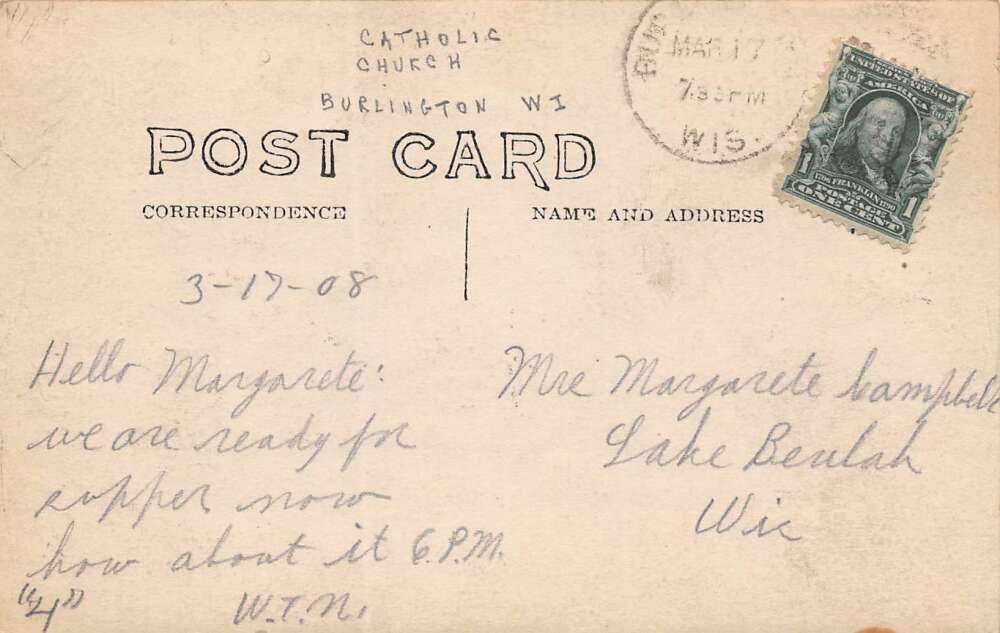 CATHOLIC
CHURCH
BURLINGTON WI
POST CARD
CORRESPONDENCE
NAME AND ADDRESS
MAR 17
7 PM
WIS.
UNITED STATES OF
AMERICA
1706 FRANKLIN 1790
POSTAGE
1 ONE CENT 1
3-17-08
Hello Margarete:
we are ready for
supper now
how about it 6 P.M.
"4" W.T.N.
Mrs Margarete Campbell
Lake Beulah
Wis